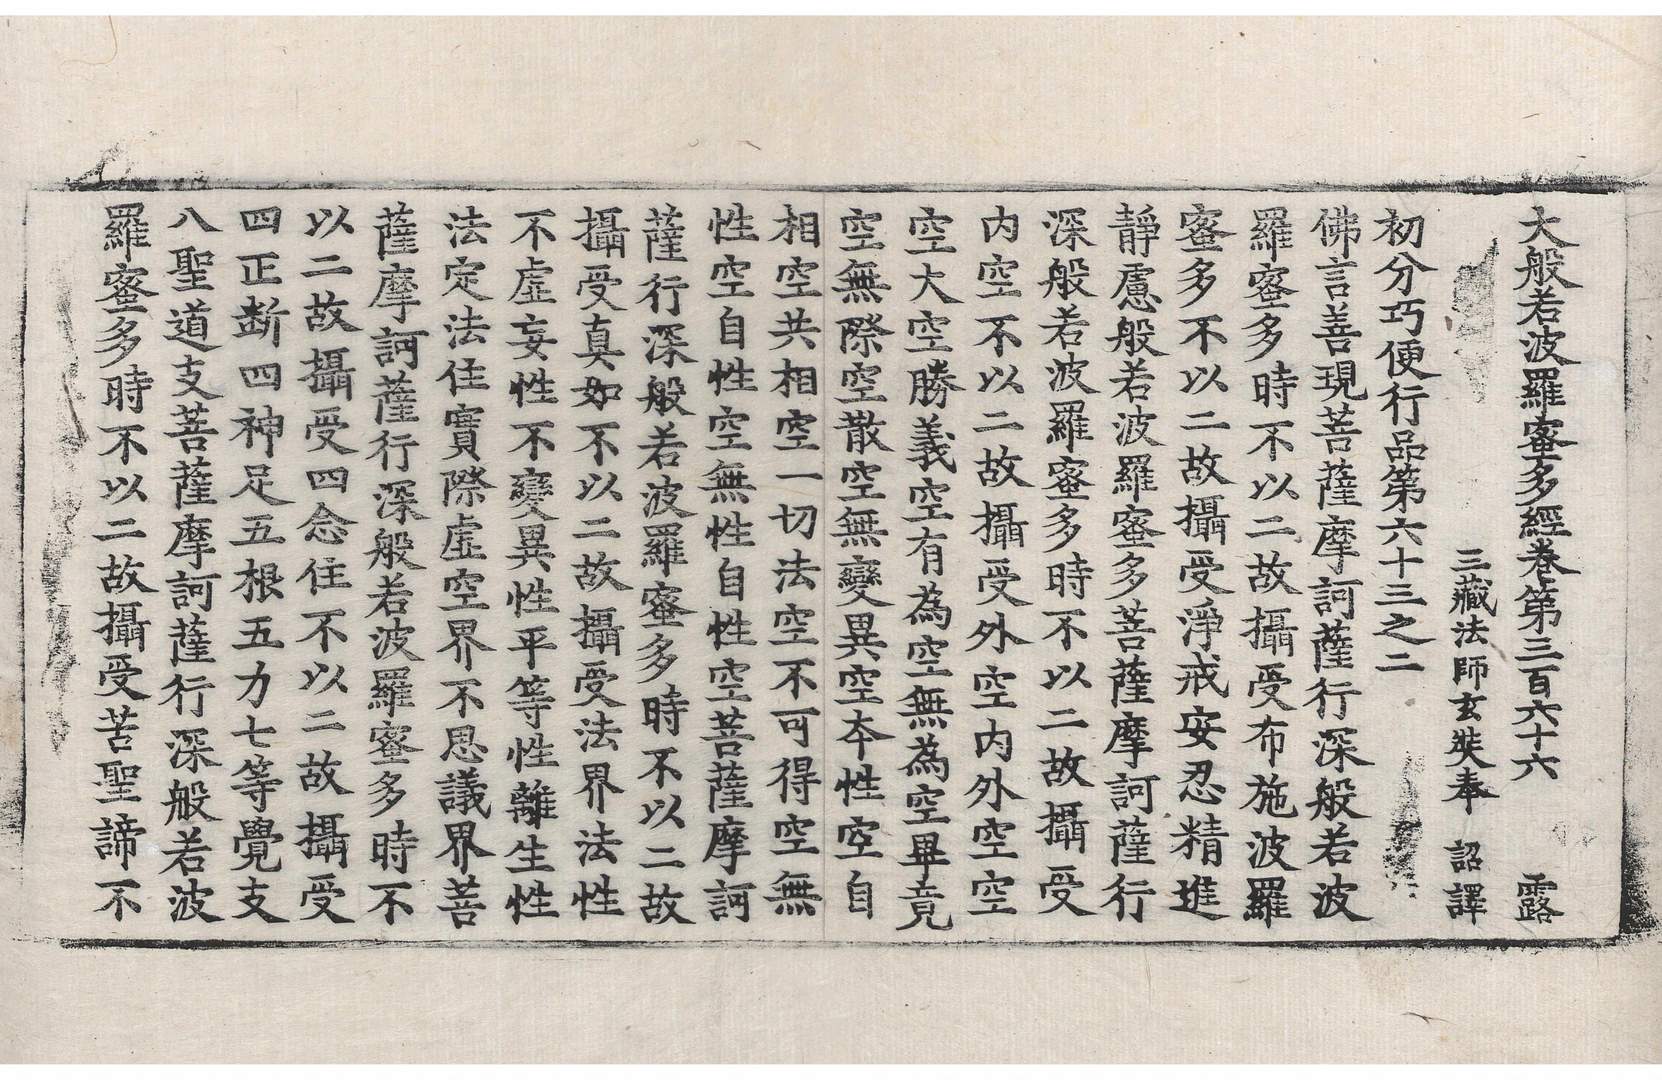 大般若波羅蜜多經卷第三百六十六　露
三藏法師玄奘奉　詔譯
初分巧便行品第六十三之二
佛言善現菩薩摩訶薩行深般若波
羅蜜多時不以二故攝受布施波羅
蜜多不以二故攝受淨戒安忍精進
靜慮般若波羅蜜多菩薩摩訶薩行
深般若波羅蜜多時不以二故攝受
内空不以二故攝受外空内外空空
空大空勝義空有為空無為空畢竟
空無際空散空無變異空本性空自
相空共相空一切法空不可得空無
性空自性空無性自性空菩薩摩訶
薩行深般若波羅蜜多時不以二故
攝受真如不以二故攝受法界法性
不虛妄性不變異性平等性離生性
法定法住實際虛空界不思議界菩
薩摩訶薩行深般若波羅蜜多時不
以二故攝受四念住不以二故攝受
四正斷四神足五根五力七等覺支
八聖道支菩薩摩訶薩行深般若波
羅蜜多時不以二故攝受苦聖諦不